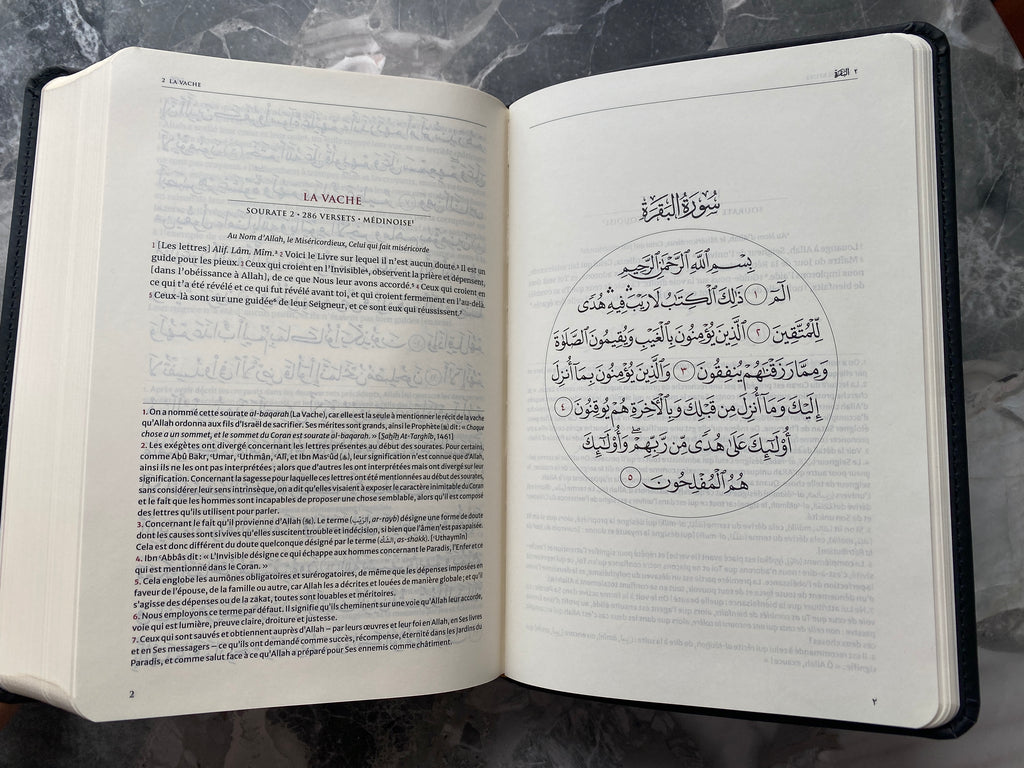 2 LA VACHE
LA VACHE
SOURATE 2 • 286 VERSETS • MÉDINOISE¹
Au Nom d'Allah, le Miséricordieux, Celui qui fait miséricorde
1 [Les lettres] Alif. Lâm. Mîm.² 2 Voici le Livre sur lequel il n'est aucun doute.³ Il est un
guide pour les pieux. 3 Ceux qui croient en l'Invisible⁴, observent la prière et dépensent,
[dans l'obéissance à Allah], de ce que Nous leur avons accordé.⁵ 4 Ceux qui croient en
ce qui t'a été révélé et ce qui fut révélé avant toi, et qui croient fermement en l'au-delà.
5 Ceux-là sont sur une guidée⁶ de leur Seigneur, et ce sont eux qui réussissent.⁷
1. On a nommé cette sourate al-baqarah (La Vache), car elle est la seule à mentionner le récit de la vache
qu'Allah ordonna aux fils d'Israël de sacrifier. Ses mérites sont grands, ainsi le Prophète (ﷺ) dit : « Chaque
chose a un sommet, et le sommet du Coran est sourate al-baqarah. » [Ṣaḥîḥ At-Targhîb, 1461]
2. Les exégètes ont divergé concernant les lettres présentes au début des sourates. Pour certains,
comme Abû Bakr, ʿUmar, ʿUthmân, ʿAlî, et Ibn Masʿûd (), leur signification n'est connue que d'Allah,
ainsi ils ne les ont pas interprétées ; alors que d'autres les ont interprétées mais ont divergé sur leur
signification. Concernant la sagesse pour laquelle ces lettres ont été mentionnées au début des sourates,
sans considérer leur sens intrinsèque, on a dit qu'elles visaient à exposer le caractère inimitable du Coran
et le fait que les hommes sont incapables de proposer une chose semblable, alors qu'il est composé
des lettres qu'ils utilisent pour parler.
3. Concernant le fait qu'il provienne d'Allah (). Le terme (الرَّيْب, ar-rayb) désigne une forme de doute
dont les causes sont si vives qu'elles suscitent trouble et indécision, si bien que l'âme n'est pas apaisée.
Cela est donc différent du doute quelconque désigné par le terme (الشَّك, as-shakk). [ʿUthaymîn]
4. Ibn ʿAbbâs dit : « L'Invisible désigne ce qui échappe aux hommes concernant le Paradis, l'Enfer et ce
qui est mentionné dans le Coran. »
5. Cela englobe les aumônes obligatoires et surérogatoires, de même que les dépenses imposées en
faveur de l'épouse, de la famille ou autre, car Allah les a décrites et louées de manière globale ; et qu'il
s'agisse des dépenses ou de la zakat, toutes sont louables et méritoires.
6. Nous employons ce terme par défaut. Il signifie qu'ils cheminent sur une voie qu'Allah leur accorde,
voie qui est lumière, preuve claire, droiture et justesse.
7. Ceux qui sont sauvés et obtiennent auprès d'Allah – par leurs œuvres et leur foi en Allah, en Ses livres
et en Ses messagers – ce qu'ils ont demandé comme succès, récompense, éternité dans les Jardins du
Paradis, et comme salut face à ce qu'Allah a préparé pour Ses ennemis comme châtiment.
2
٢ البقرة
سُورَةُ الْبَقَرَةِ
بِسْمِ اللَّهِ الرَّحْمَٰنِ الرَّحِيمِ
الٓمٓ ١ ذَٰلِكَ الْكِتَٰبُ لَا رَيْبَ ۛ فِيهِ ۛ هُدًى
لِّلْمُتَّقِينَ ٢ الَّذِينَ يُؤْمِنُونَ بِالْغَيْبِ وَيُقِيمُونَ الصَّلَوٰةَ
وَمِمَّا رَزَقْنَٰهُمْ يُنفِقُونَ ٣ وَالَّذِينَ يُؤْمِنُونَ بِمَا أُنزِلَ
إِلَيْكَ وَمَا أُنزِلَ مِن قَبْلِكَ وَبِالْأَخِرَةِ هُمْ يُوقِنُونَ ٤
أُوْلَٰٓئِكَ عَلَىٰ هُدًى مِّن رَّبِّهِمْ ۖ وَأُوْلَٰٓئِكَ
هُمُ الْمُفْلِحُونَ ٥
٢